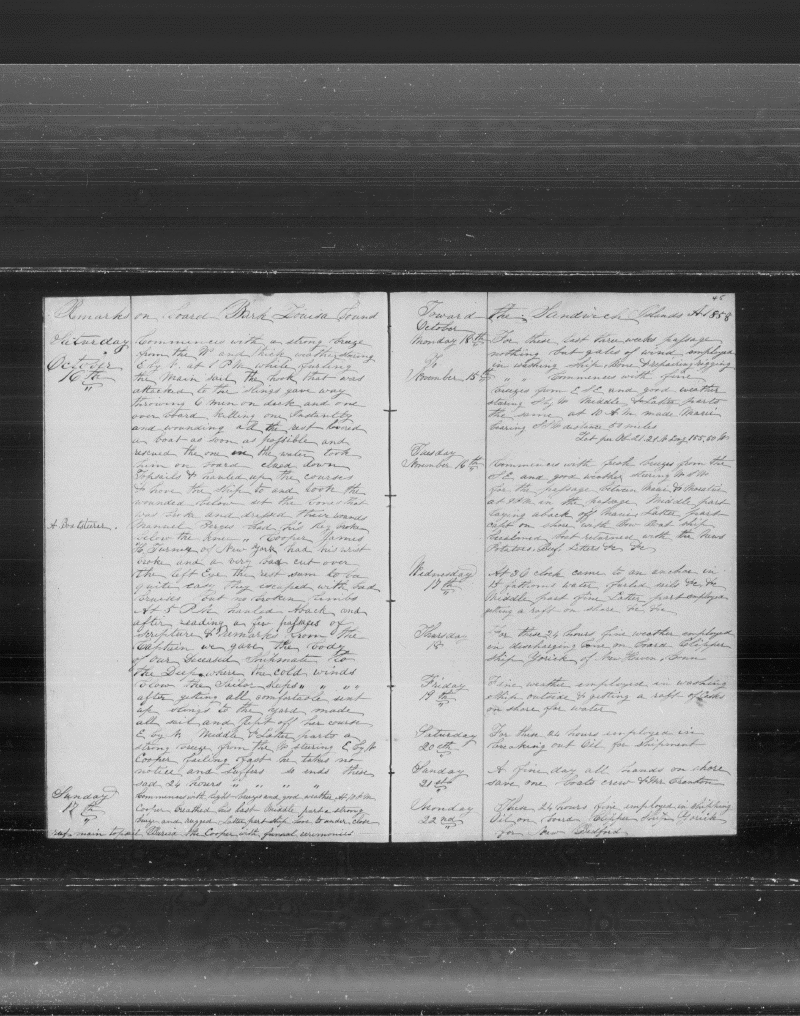 Remarks on board Bark Louisa Sound
Saturday
October
16th
"
Commences with a strong breeze
from the W and thick weather steering
E by N. at 1 P.M. while furling
the Main sail the hook that was
attached to the slings gave way
throwing 6 men on deck and one
over board killing one Instantly
and wounding all the rest lowered
a boat as soon as possible and
rescued the one in the water took
him on board clued down
Topsails & hauled up the courses
& hove the ship to and took the
wounded below set the bones that
was broke and dressed their wounds
A Boatsteerer.
Manuel had his leg broke
below the knee " Cooper James
H Turner of New York had his wrist
broke and a very bad cut over
the left Eye the rest seem to be
quite easy they escaped with bad
bruises but no broken limbs
At 5 P.M. hauled aback and
after reading a few passages of
Scripture & remarks from the
Captain we gave the body
of our deceased Shipmate to
the Deep where the cold winds
blow the Sailor sleeps " " " "
after getting all comfortable sent
up slings to the yard made
all sail and kept off her course
E by N Middle & Latter parts a
strong breeze from the W steering E by N
Cooper failing fast he takes no
notice and suffers so ends these
sad 24 hours " " " "
Sunday
17th
"
Commences with light breezes and good weather At 7 P.M.
Cooper breathed his last Middle part a strong
breeze and rugged Latter part ship hove to under close
reef main topsail Buried the Cooper with funeral ceremonies
46
Toward the Sandwich Islands Ad 1858
October
Monday 18th
To
November 15th
For these last three weeks passage
nothing but gales of wind employed
in washing ship bone & repairing rigging
" " Commences with fine
breezes from S E and good weather
steering S by W Middle & Latter parts
the same at 10 A.M. made Maui
bearing S W distance 50 miles
Lat per Ob 21.21 N Long 155,50 W
Tuesday
November 16th
Commences with fresh breezes from the
S E and good weather steering W S W
for the passage between Maui &
at 9 P.M. in the passage Middle part
laying aback off Maui Latter part
kept on shore with Bow Boat ship
becalmed boat returned with the News
Potatoes, Beef Letters &c &c
Wednesday
17th
"
At 3 O clock came to an anchor in
fathoms water furled sails &c &c
Middle part fine Latter part employed
getting a raft on shore &c &c
Thursday
18
For these 24 hours fine weather employed
in discharging bone on board Clipper
ship Yorick of New Haven, Conn
Friday
19th
"
Fine weather employed in washing
ship outside & getting a raft of Casks
on shore for water
Saturday
20th
For these 24 hours employed in
breaking out Oil for shipment
Sunday
21st
A fine day all hands on shore
save one boats crew & Mr Cranston
Monday
22nd
These 24 hours fine employed in shipping
Oil on board Clipper Ship Yorick
for New Bedford